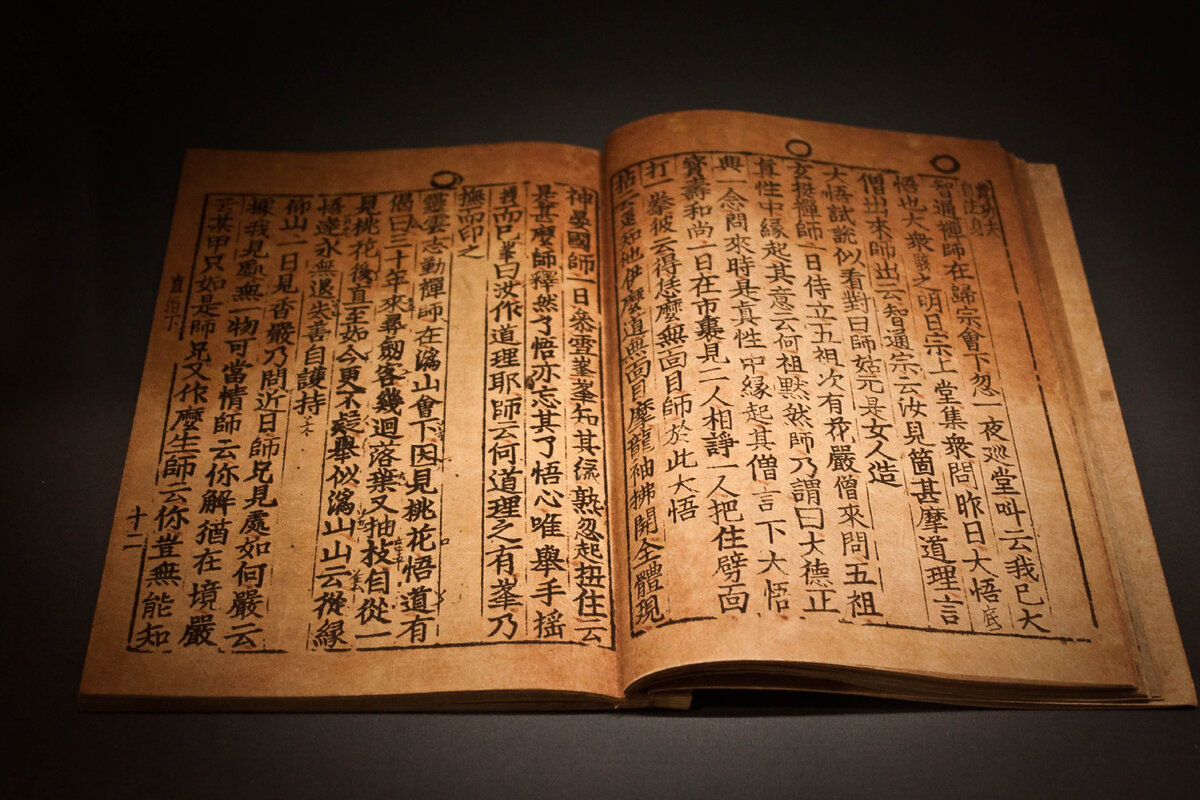 智通禪師在歸宗會下忽一夜巡堂叫云我已大
悟也大衆駭之明日宗上堂集衆問昨日大悟底
僧出來師出云智通宗云汝見箇甚摩道理言
大悟試說似看對曰師姑元是女人造
玄挺禪師一日侍立五祖次有華嚴僧來問五祖
眞性中緣起其意云何祖默然師乃謂曰大德正
興一念問來時是眞性中緣起其僧言下大悟
寶壽和尚一日在市裏見二人相諍一人把住劈面
打一拳彼云得恁麼無面目師於此大悟
拈 知他伊麼道無面目摩龍袖拂開全體現
神晏國師一日叅雪峯峯知其緣熟忽起扭住云
是甚麼師釋然了悟亦忘其了悟心唯擧手搖
曳而已峯曰汝作道理耶師云何道理之有峯乃
撫而印之
靈雲志勤禪師在潙山會下因見桃花悟道有
偈曰三十年來尋劒客幾迴落葉又抽枝自從一
見桃花後直至如今更不疑擧似潙山山云從緣
悟達永無退失善自護持
仰山一日見香嚴乃問近日師兄見處如何嚴云
據我見處無一物可當情師云你解猶在境嚴
云某甲只如是師兄又作麼生師云你豈無能知
直指下
十二